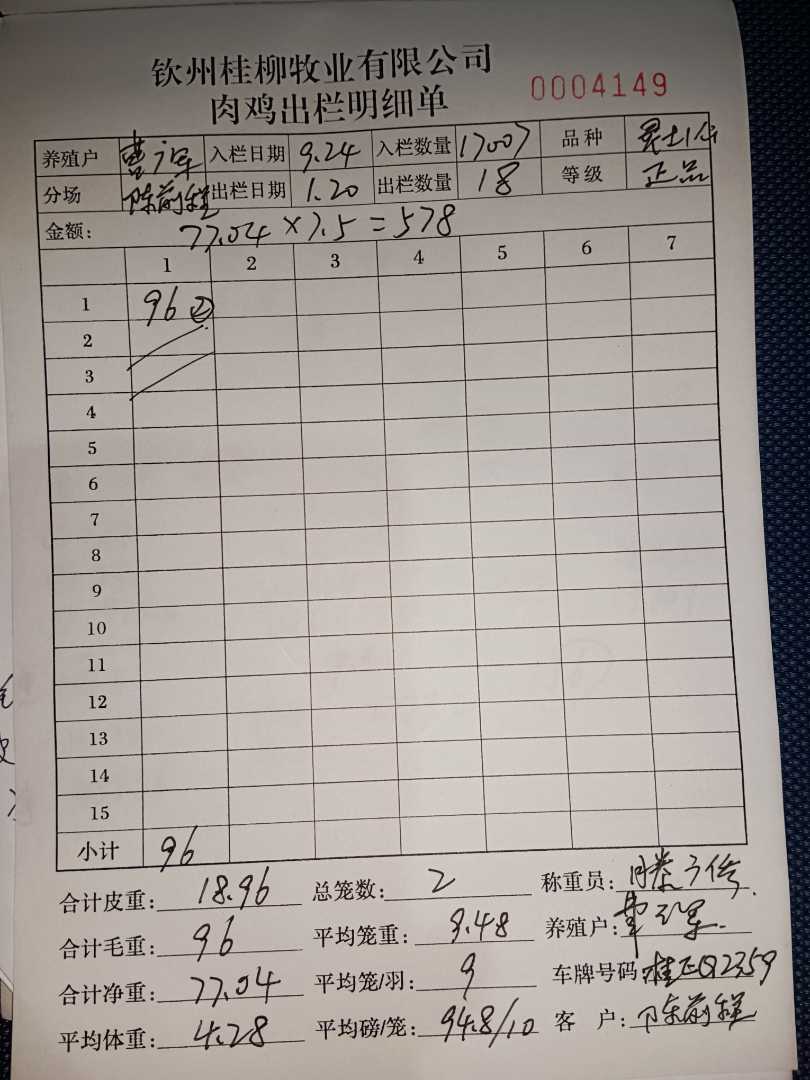 钦州桂柳牧业有限公司
肉鸡出栏明细单 0004149
养殖户 入栏日期 9.24 入栏数量 17007 品种
分场 陈前程 出栏日期 1.20 出栏数量 18 等级 正品
金额: 77.04×7.5=578
1 2 3 4 5 6 7
1 96②
2
3
4
5
6
7
8
9
10
11
12
13
14
15
小计 96
合计皮重: 18.96 总笼数: 2 称重员:
合计毛重: 96 平均笼重: 9.48 养殖户:
合计净重: 77.04 平均笼/羽: 9 车牌号码: 桂 Q2359
平均体重: 4.28 平均磅/笼: 94.8/10 客户: 陈前程